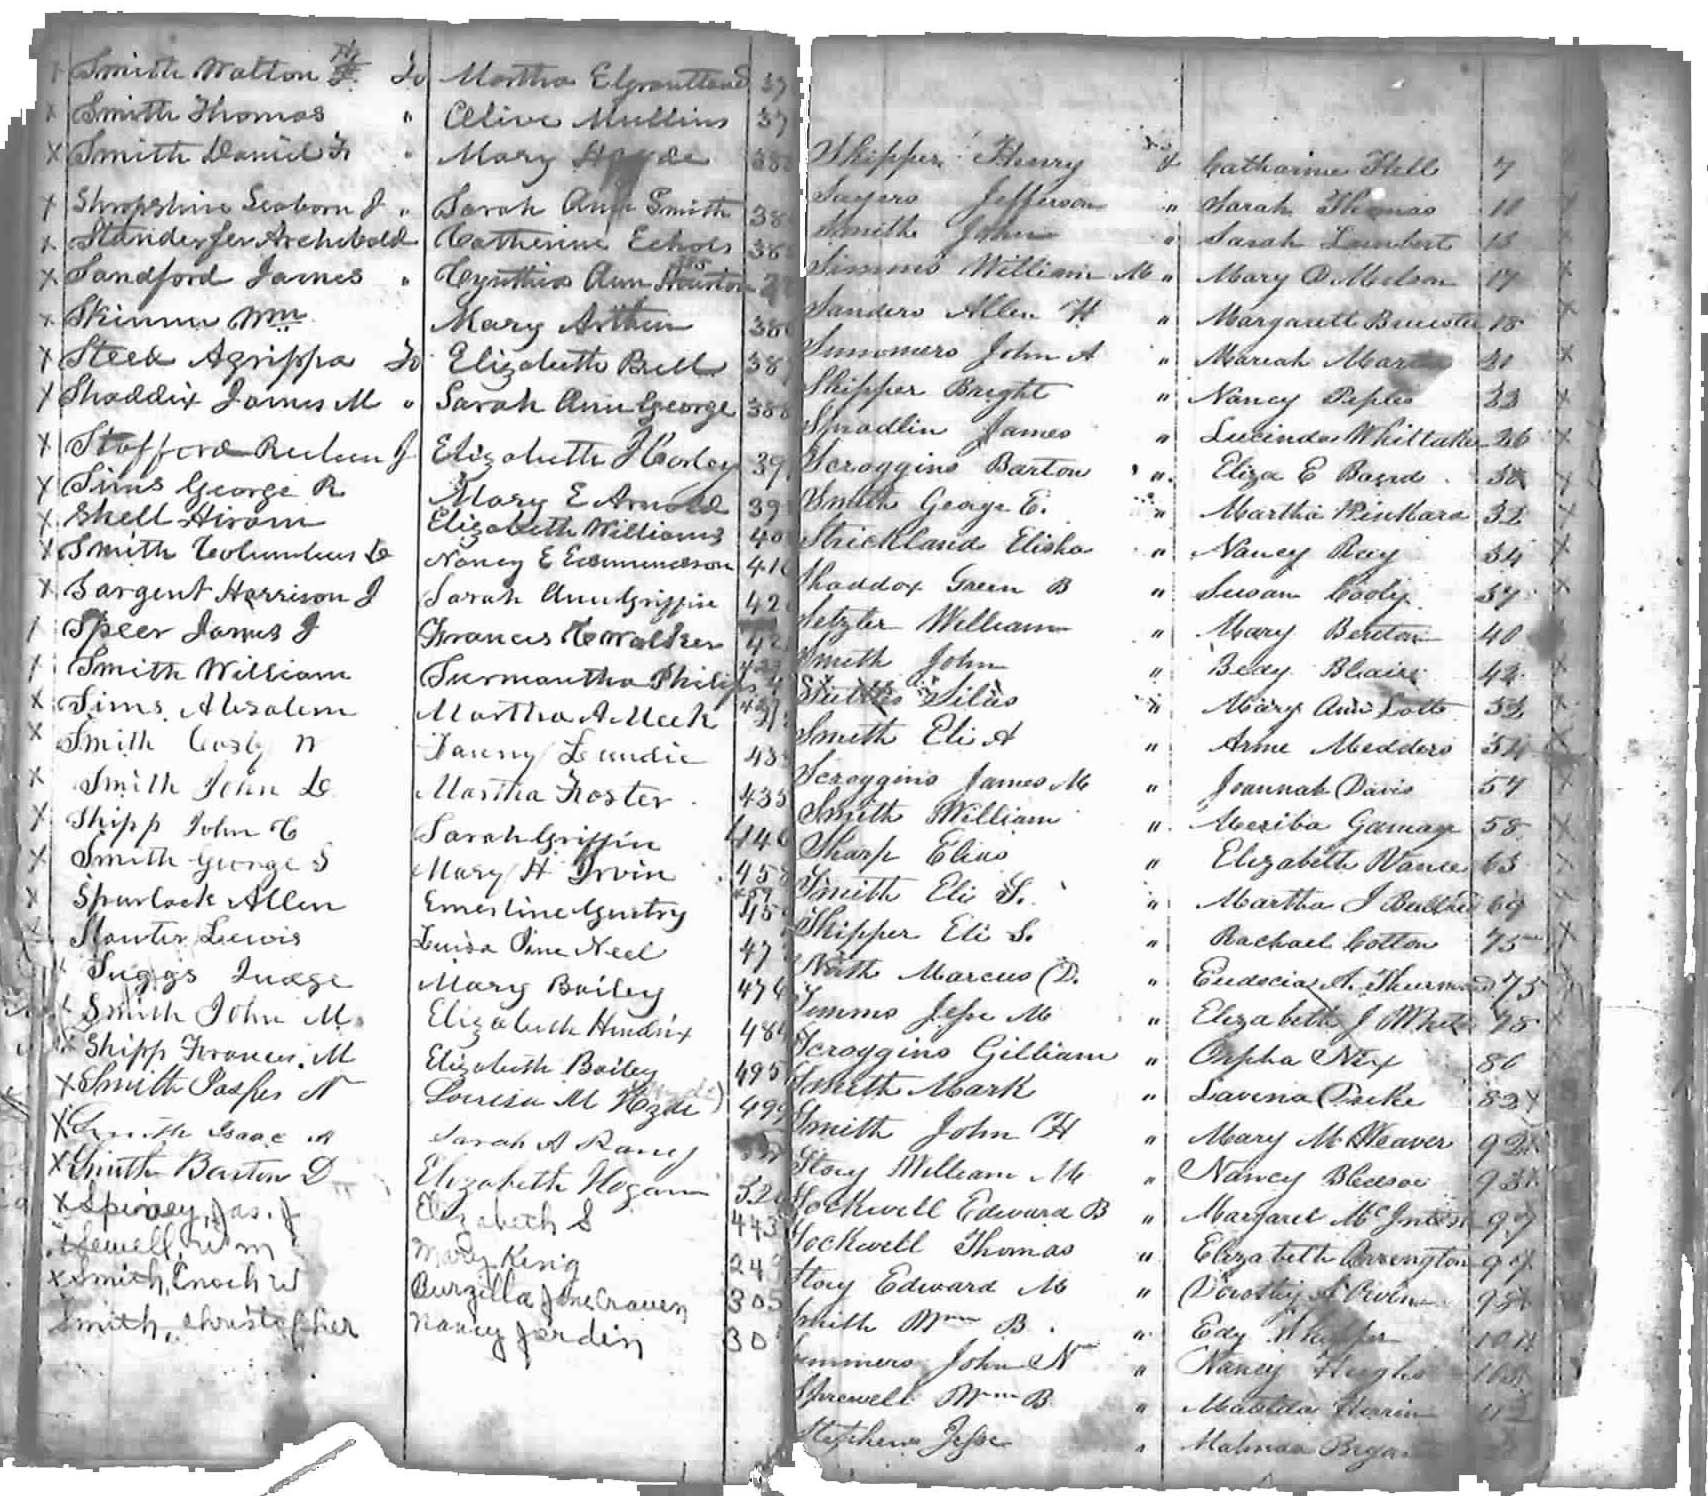 Smith Walton To Martha E Grantland 37
Smith Thomas " Olive Mullins 37
Smith Daniel Jr " Mary 38
Shropshire Seaborn J " Sarah Ann Smith 38
Standerfer Archibald Catherine Echols 38
Sandford James " Cynthia Ann Houston
Skinner Wm Mary Arthur 38
Steed Agrippa To Elizabeth Bell 387
Shaddix James M " Sarah Ann George 388
Stafford Reuben J Elizabeth J Corley 39
Sims George R Mary E Arnold 39
Skell Hiram Elizabeth Williams 40
Smith Columbus Nancy E Edmundson 41
Sargent Harrison J Sarah Ann Griffin 42
Speer James J Frances C Walker 42
Smith William Surmantha Philips
Sims Abzalem Martha A Meek
Smith Cosby N Fanny Lundie 43
Smith John Martha Foster 435
Shipp John C Sarah Griffin 446
Smith George S Mary H Irvin 458
Spurlock Allen Emerline Gentry 45
Lewis Luisa Jine Neel 47
Suggs Judge Mary Bailey 476
Smith John M. Elizabeth Hendrix 48
Shipp Frances M Elizabeth Bailey 495
Smith Jasper N Louisa M Hyde 499
Smith Isaac Sarah A Raney
Smith Barton D Elizabeth Hogan 52
Spivey, Jas. J Elizabeth S 443
Sewell, Wm Mary King 24
Smith, Enoch W Burzilla Jane Craven 305
Smith, Christopher Nancy Jordin 30
Skipper Henry to Catharine Hell 7
Sayers Jefferson " Sarah Thomas 11
Smith John " Sarah Lambert 13
Simms William M " Mary O. Melson 17
Sanders Allen H " Margarett Brewster 18
Summers John A " Mariah 21
Skipper Bright " Nancy Peples 23
Spradlin James " Lucinda Whittaker 26
Scroggins Barton " Eliza E Baird 30
Smith George E. " Martha 32
Strickland Elisha " Nancy Ray 34
Shaddox Green B " Susan Cooly 37
Setzler William " Mary Benton 40
Smith John " Bedy Blair 42
Silas " Mary Ann Lott 52
Smith Eli A " Anne Medders 54
Scroggins James M " Joannah Davis 57
Smith William " Meziba Gamage 58
Sharp Elias " Elizabeth Vance 63
Smith Eli S. " Martha J 69
Skipper Eli S. " Rachael Cotton 75
North Marcus D. " Eudocia A. Thurmond 75
Simms Jesse M " Elizabeth J White 78
Scroggins Gilliam " Orpha Nix 86
Smith Mark " Lavina Peeke 82
Smith John H " Mary M Weaver 92
Story William M " Nancy Bledsoe 93
Sockwell Edward B " Margaret McIntosh 97
Sockwell Thomas " Elizabeth Arrington 97
Story Edward M " Dorothy 98
Smith Wm B. " Edy 101
Summers John N " Nancy Hughs 105
Sprewell Wm B " Matilda Herrin 112
Stephens Jesse " Malinda Bryan